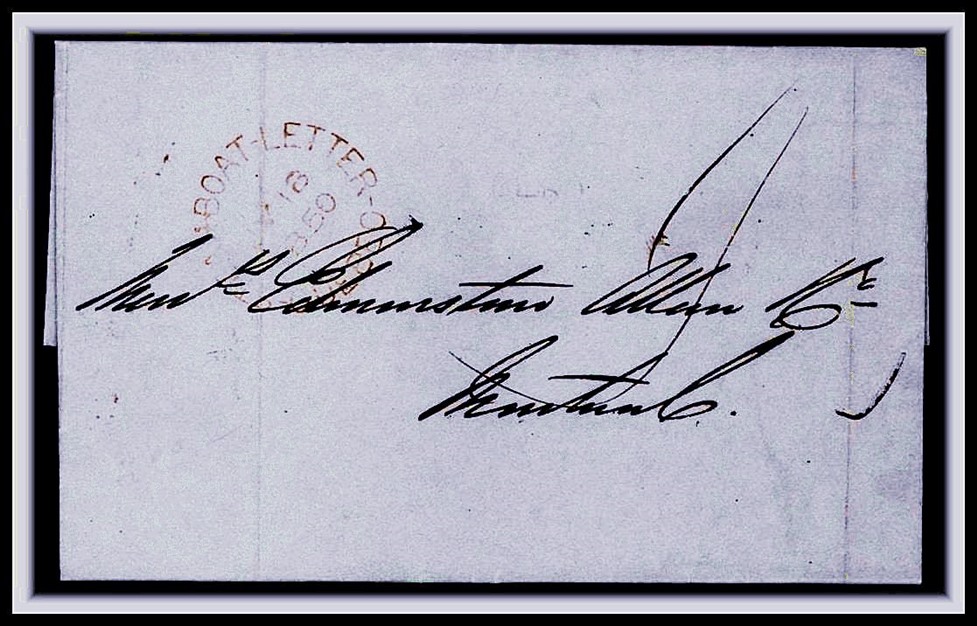 BOAT-LETTER-O
18
1850
Mess.rs Edmonstone Allan & Co
Montreal.